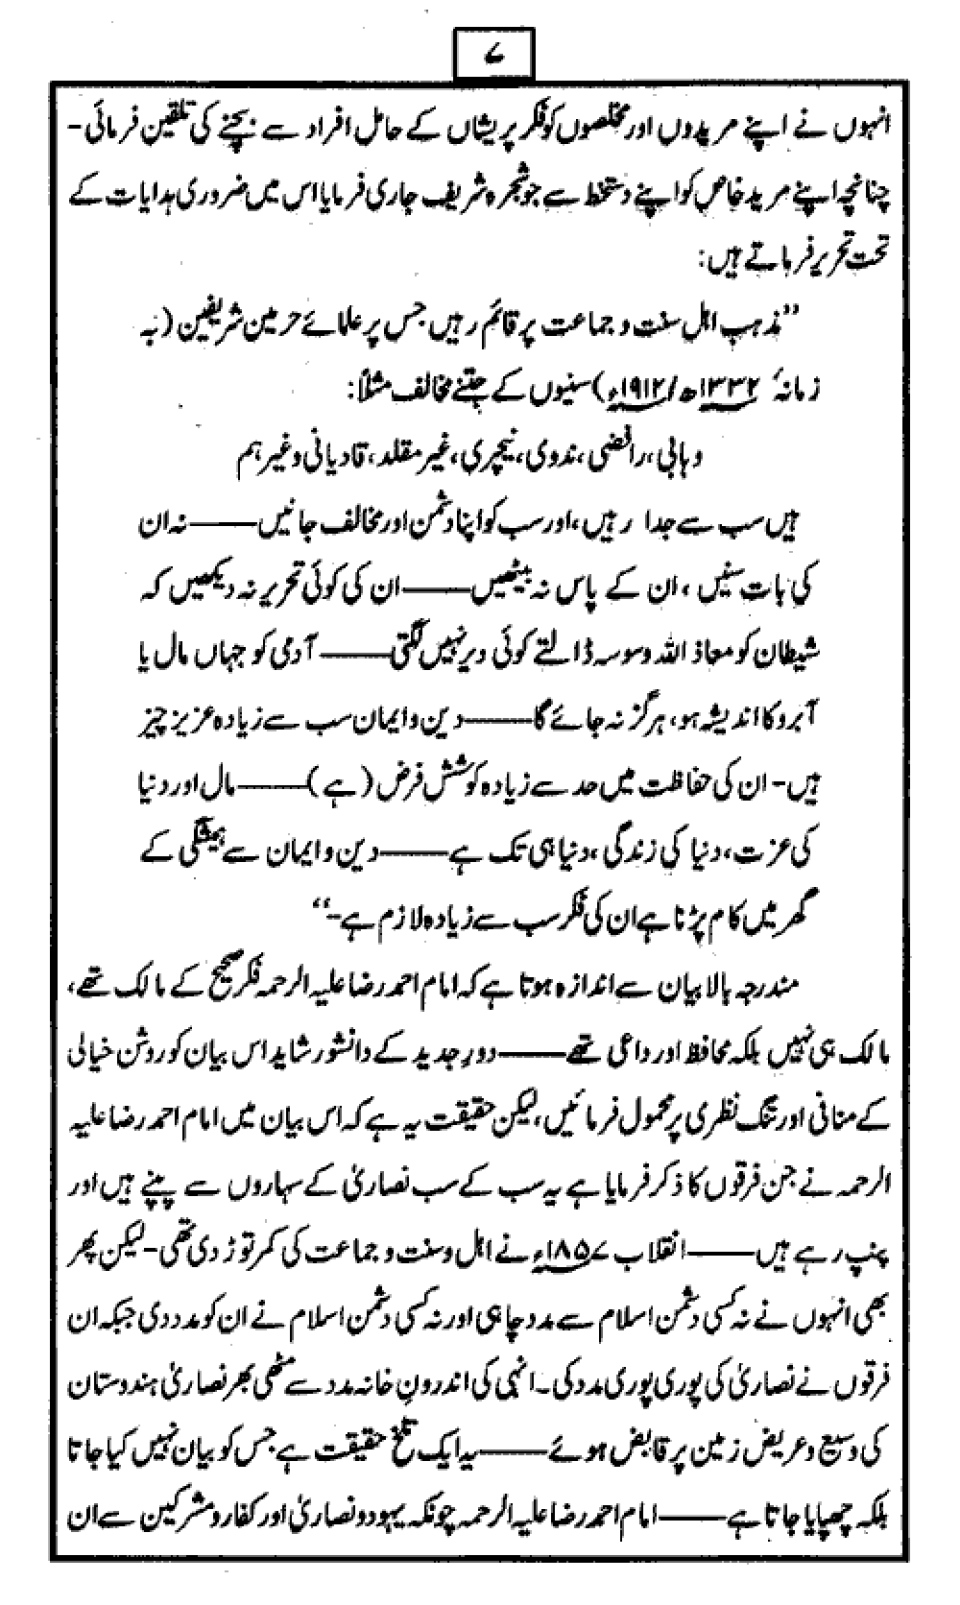 ۷
انہوں نے اپنے مریدوں اور مخلصوں کو فکر پریشاں کے حامل افراد سے بچنے کی تلقین فرمائی-
چنانچہ اپنے مرید خاص کو اپنے دستخط سے جو شجرہ شریف جاری فرمایا اس میں ضروری ہدایات کے
تحت تحریر فرماتے ہیں:
”مذہب اہل سنت و جماعت پر قائم رہیں جس پر علمائے حرمین شریفین (بہ
زمانۂ ۱۳۳۲ھ/۱۹۱۲ء) سنیوں کے جتنے مخالف مثلاً:
وہابی، رافضی، ندوی، نیچری، غیر مقلد، قادیانی وغیرہم
ہیں سب سے جدا رہیں، اور سب کو اپنا دشمن اور مخالف جانیں——نہ ان
کی بات سنیں، ان کے پاس نہ بیٹھیں——ان کی کوئی تحریر نہ دیکھیں کہ
شیطان کو معاذ اللہ وسوسہ ڈالتے کوئی دیر نہیں لگتی——آدمی کو جہاں مال یا
آبرو کا اندیشہ ہو، ہرگز نہ جائے گا——دین و ایمان سب سے زیادہ عزیز چیز
ہیں- ان کی حفاظت میں حد سے زیادہ کوشش فرض (ہے)——مال اور دنیا
کی عزت، دنیا کی زندگی، دنیا ہی تک ہے——دین و ایمان سے ہمیشگی کے
گھر میں کام پڑنا ہے ان کی فکر سب سے زیادہ لازم ہے-“
مندرجہ بالا بیان سے اندازہ ہوتا ہے کہ امام احمد رضا علیہ الرحمہ فکر صحیح کے مالک تھے،
مالک ہی نہیں بلکہ محافظ اور داعی تھے——دورِ جدید کے دانشور شاید اس بیان کو روشن خیالی
کے منافی اور تنگ نظری پر محمول فرمائیں، لیکن حقیقت یہ ہے کہ اس بیان میں امام احمد رضا علیہ
الرحمہ نے جن فرقوں کا ذکر فرمایا ہے یہ سب کے سب نصاریٰ کے سہاروں سے پنپے ہیں اور
پنپ رہے ہیں——انقلاب ۱۸۵۷ء نے اہل و سنت و جماعت کی کمر توڑ دی تھی- لیکن پھر
بھی انہوں نے نہ کسی دشمن اسلام سے مدد چاہی اور نہ کسی دشمن اسلام نے ان کو مدد دی جبکہ ان
فرقوں نے نصاریٰ کی پوری پوری مدد کی- انہی کی اندرونِ خانہ مدد سے مٹھی بھر نصاریٰ ہندوستان
کی وسیع و عریض زمین پر قابض ہوئے——یہ ایک تلخ حقیقت ہے جس کو بیان نہیں کیا جاتا
بلکہ چھپایا جاتا ہے——امام احمد رضا علیہ الرحمہ چونکہ یہود و نصاریٰ اور کفار و مشرکین سے ان